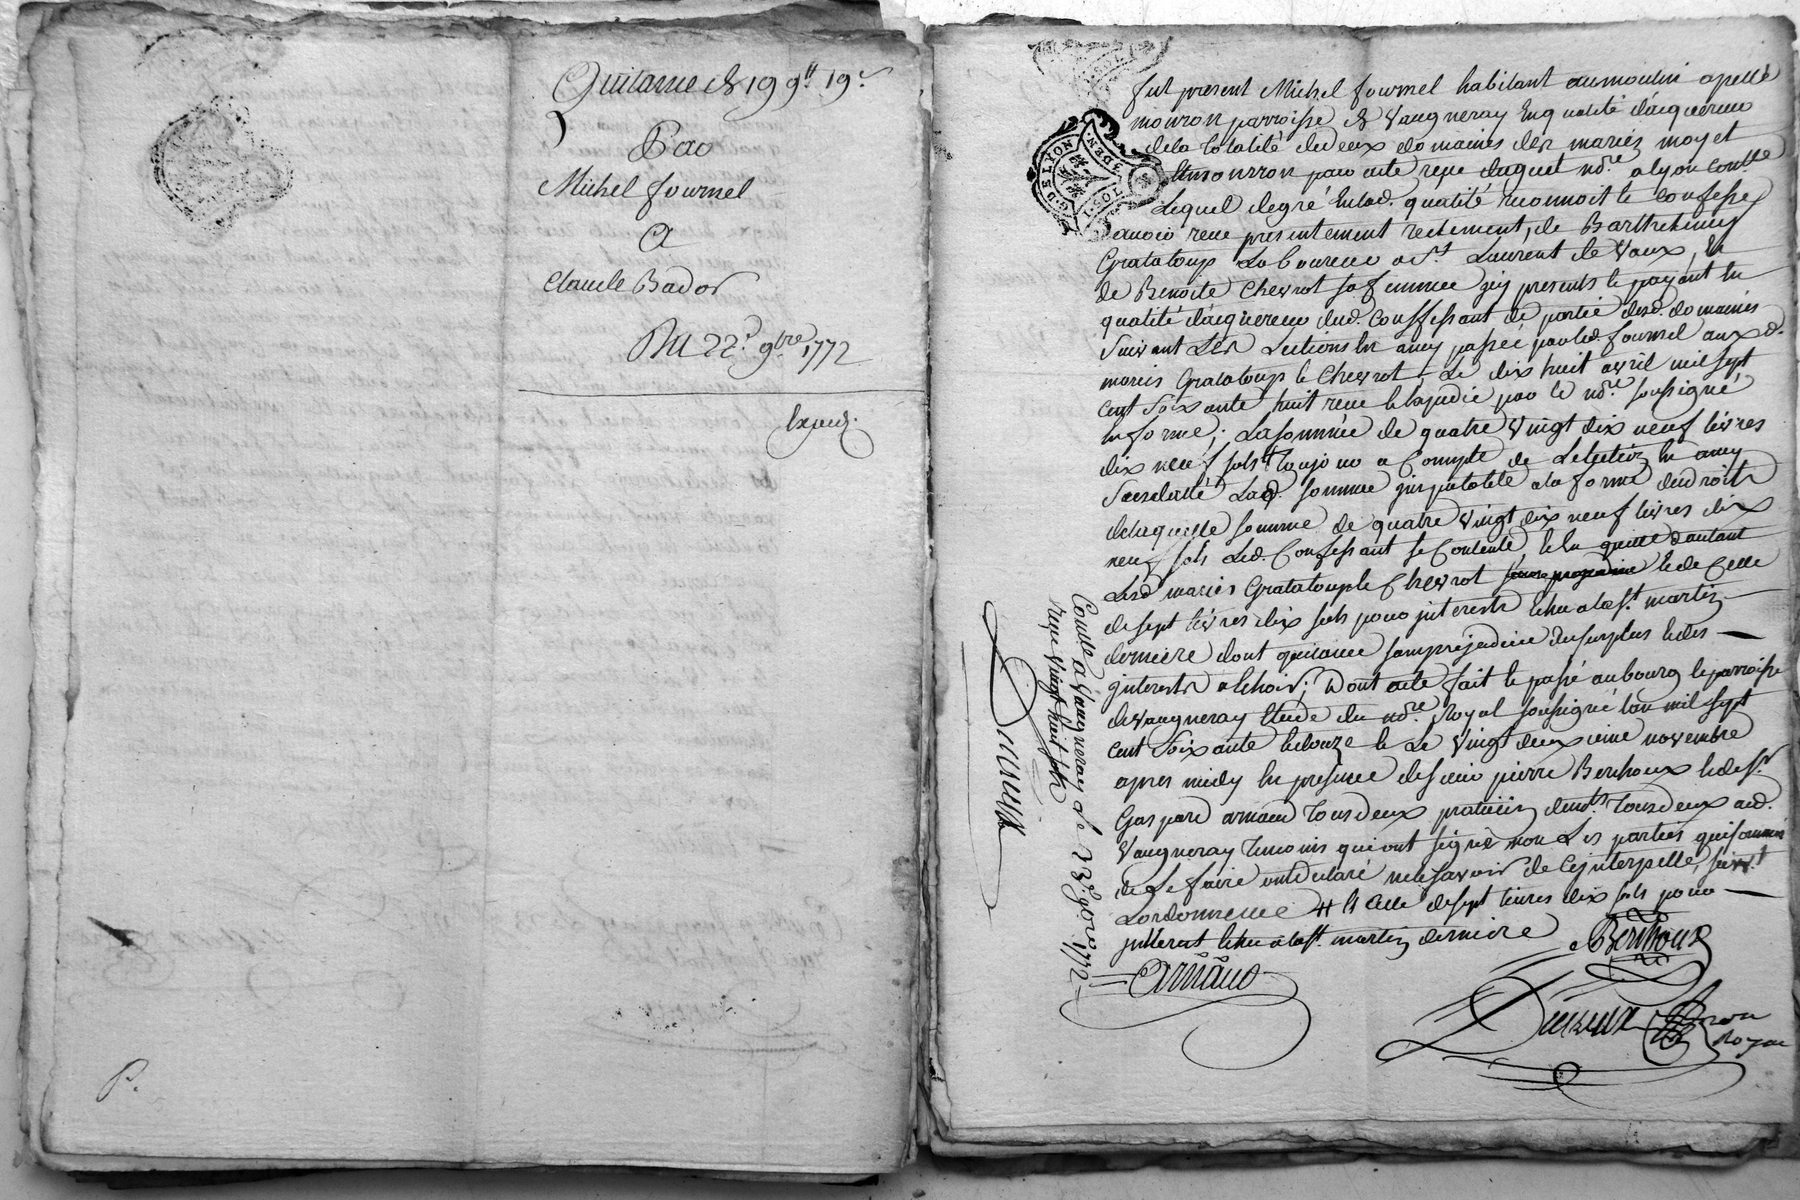 Quitance de 99ᵗᵗ 19ˢ
Par
Michel fournel
A
Claude Bador
Du 22ᵉ 9bre 1772
Exped.
P.
G. DE LYON
fut present Michel fournel habitant au moulin apellé
mouron parroisse de Vaugneray En qualité d'acquereur
de la totalité de deux domaines des mariez moyet
et mouron par acte reçu duguet nore. a lyon Conllé
Lequel de gré En lad. qualité reconnoit et Confesse
avoir reçu presentement reelement, de Barthelemy
Grataloup Laboureur a St. Laurent de Vaux, Et
de Benoite Chevrot sa femme icy presents et payant En
qualité d'acquereur dud. Confessant de partie desd. domaines
Suivant Les Elections En amy passée par led. fournel aux d.
mariés Grataloup et Chevrot Le dix huit avril mil sept
cent Soixante huit reçue et Expediée par le nore. soussigné
En forme; La somme de quatre Vingt dix neuf livres
dix neuf sols a Compte de L'election En amy
Susdatté Lad. somme
de laquelle somme de quatre Vingt dix neuf livres dix
neuf sols Led. Confessant se Contente, et En quitte d'autant
Lesd. mariés Grataloup et Chevrot et de Celle
de sept livres dix sols pour interests Echu a la St. martin
derniere dont quitance sans prejudice du surplus et des
interests a Echoir; Dont acte fait et passé au bourg et parroisse
de vaugneray Etude du nore. Royal soussigné L'an mil sept
cent Soixante et douze et Le Vingt deuxieme novembre
apres midy En presence de sieur pierre Berthoux et de sr.
Gaspard arnaud tous deux praticien demts. tous deux aud.
Vaugneray temoins qui ont signé non Les parties qui sommés
de Le faire ont declaré ne le savoir de Ce interpellé, suivt.
L'ordonnence # et Celle de sept livres dix sols pour
interest Echu a la St. martin derniere
Berthoux
Arnaud
Royal
Conllé a Vaugneray Le 23e 9bre 1772
reçu Vingt huit sols